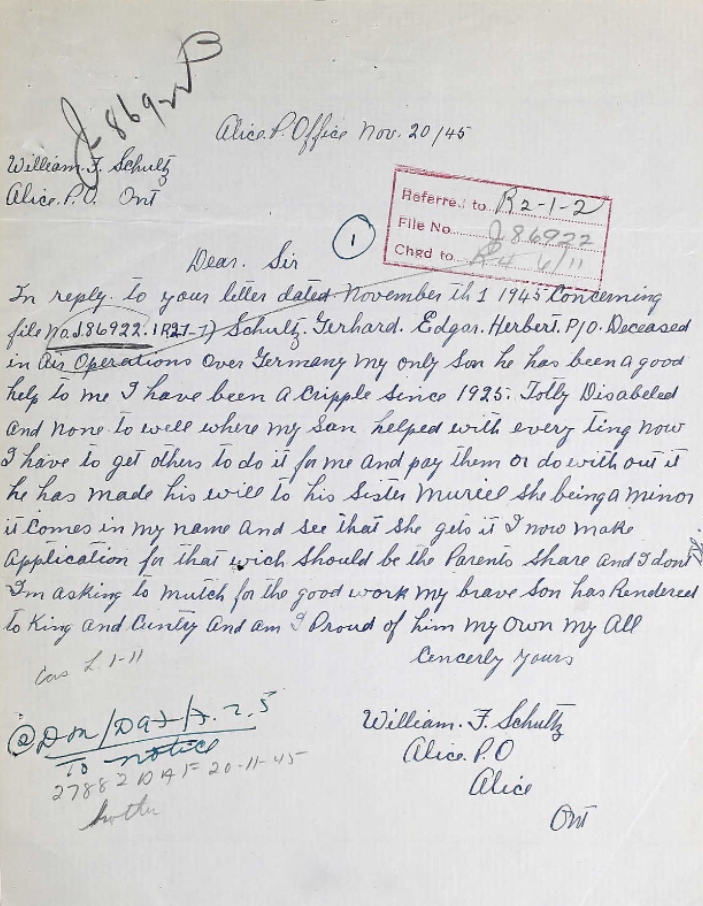 J-86922
Alice. P. Office Nov. 20/45
William. F. Schultz
Alice. P. O. Ont
Referred to R2-1-2
File No. J86922
Chgd to R4 6/11
1
Dear. Sir
In reply. to your letter dated November th 1 1945 Concerning
file No. J.86922. (R21-1) Schultz. Gerhard. Edgar. Herbert. P/O. Deceased
in Air Operations Over Germany my only Son he has been a good
help to me I have been a Cripple Since 1925. Tolly Disabeled
And none to well where my Son helped with every ting Now
I have to get others to do it for me And pay them or do with out it
he has made his will to his Sister Muriel She being a minor
it Comes in my name And See that She gets it I now make
Application for that wich Should be the Parents Share And I dont
I'm asking to mutch for the good work my brave Son has Rendered
to King And Cuntry And am I Proud of him My Own My All
Cencerly Yours
Cas L. 1-11
William. F. Schultz
Alice. P. O
Alice
Ont
To notice
27882 DAF 20-11-45